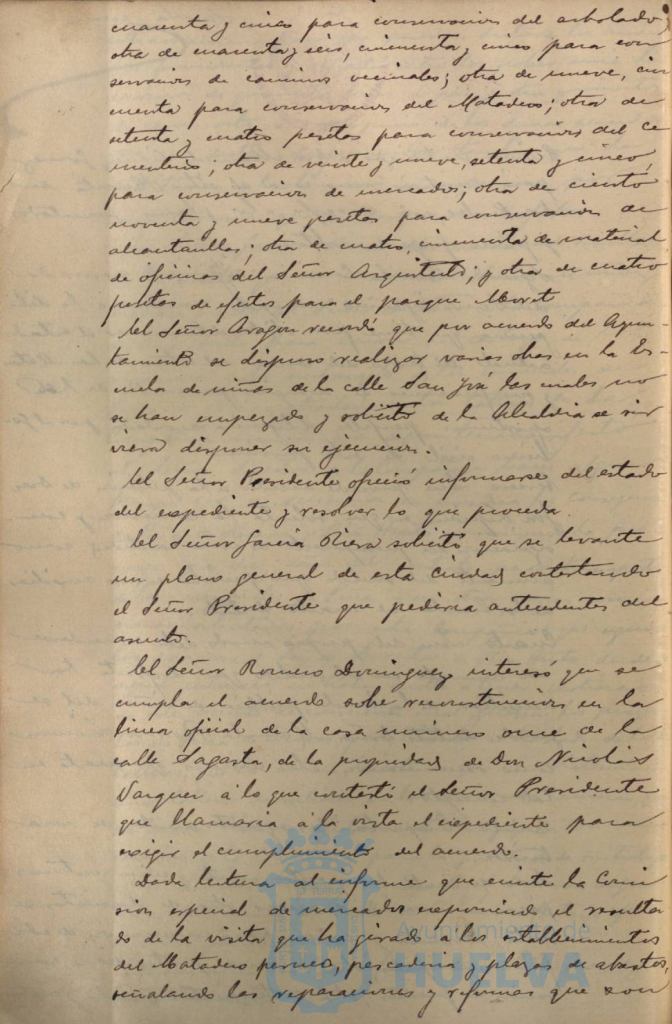 cuarenta y cinco para conservacion del arbolado;
otra de cuarenta y seis, cincuenta y cinco para con
servacion de caminos vecinales; otra de nueve, cin
cuenta para conservacion del Matadero; otra de
setenta y cuatro pesetas para conservacion del ce
menterio; otra de veinte y nueve, setenta y cinco,
para conservacion de mercados; otra de ciento
noventa y nueve pesetas para conservacion de
alcantarillas; otra de cuatro, cincuenta de material
de oficinas del Señor Arquitecto; y otra de cuatro
pesetas de efectos para el parque Moret
El Señor Aragon recordó que por acuerdo del Ayun-
tamiento se dispuso realizar varias obras en la Es-
cuela de niñas de la calle San José las cuales no
se han empezado y solicitó de la Alcaldia se sir
viera disponer su ejecucion.
El Señor Presidente ofreció informarse del estado
del expediente y resolver lo que proceda.
El Señor Garcia Riera solicitó que se levante
un plano general de esta Ciudad, contestando
el Señor Presidente que pediria antecedentes del
asunto.
El Señor Romero Dominguez interesó que se
cumpla el acuerdo sobre reconstruccion en la
linea oficial de la casa numero once de la
calle Sagasta, de la propiedad de Don Nicolás
Vazquez á lo que contestó el Señor Presidente
que llamaria á la vista el expediente para
exigir el cumplimiento del acuerdo.
Dada lectura al informe que emite la Comi
sion especial de mercados exponiendo el resulta
do de la visita que ha girado á los establecimientos
del Matadero, pescaderia y plazas de abastos,
señalando las reparaciones y reformas que son
Ayuntamiento de
HUELVA